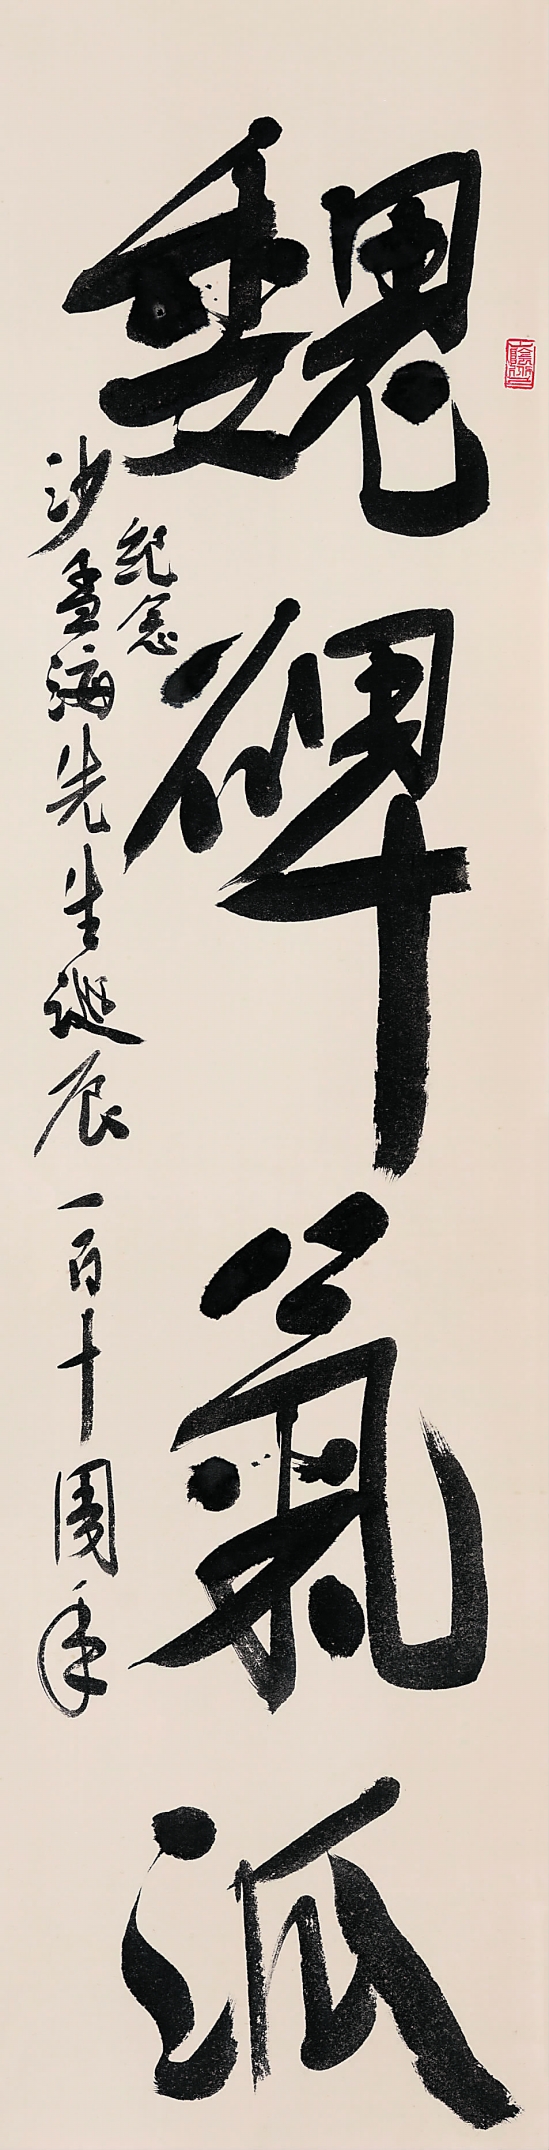 魏碑氣派
紀念
沙孟海先生誕辰一百十周年